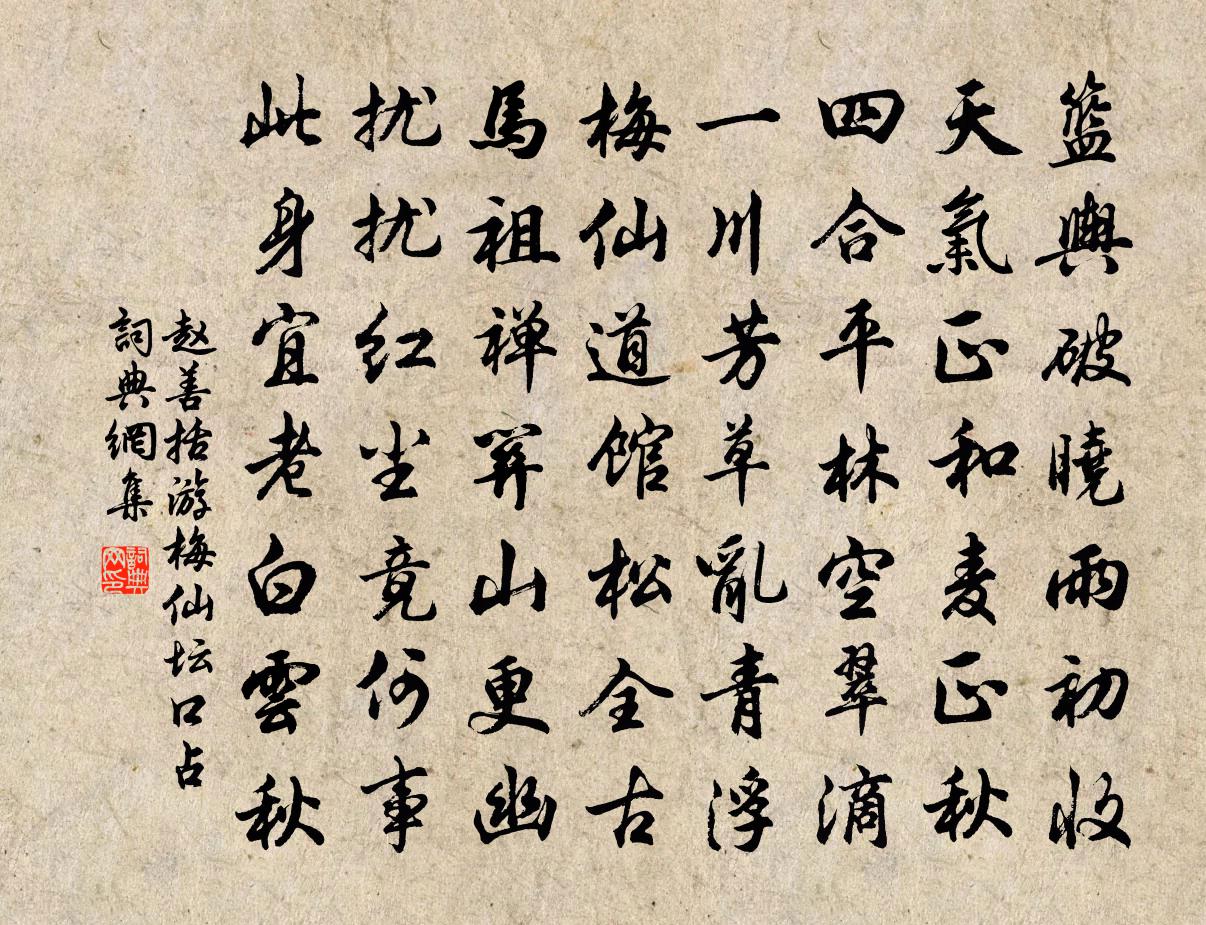 籃輿破曉雨初收
天氣正和麦正秋
四合平林空翠滴
一川芳草亂青浮
梅仙道馆松全古
馬祖禅关山更幽
扰扰红尘竟何事
此身宜老白雲秋
赵善括游梅仙坛口占
詞典網集
詞典网印